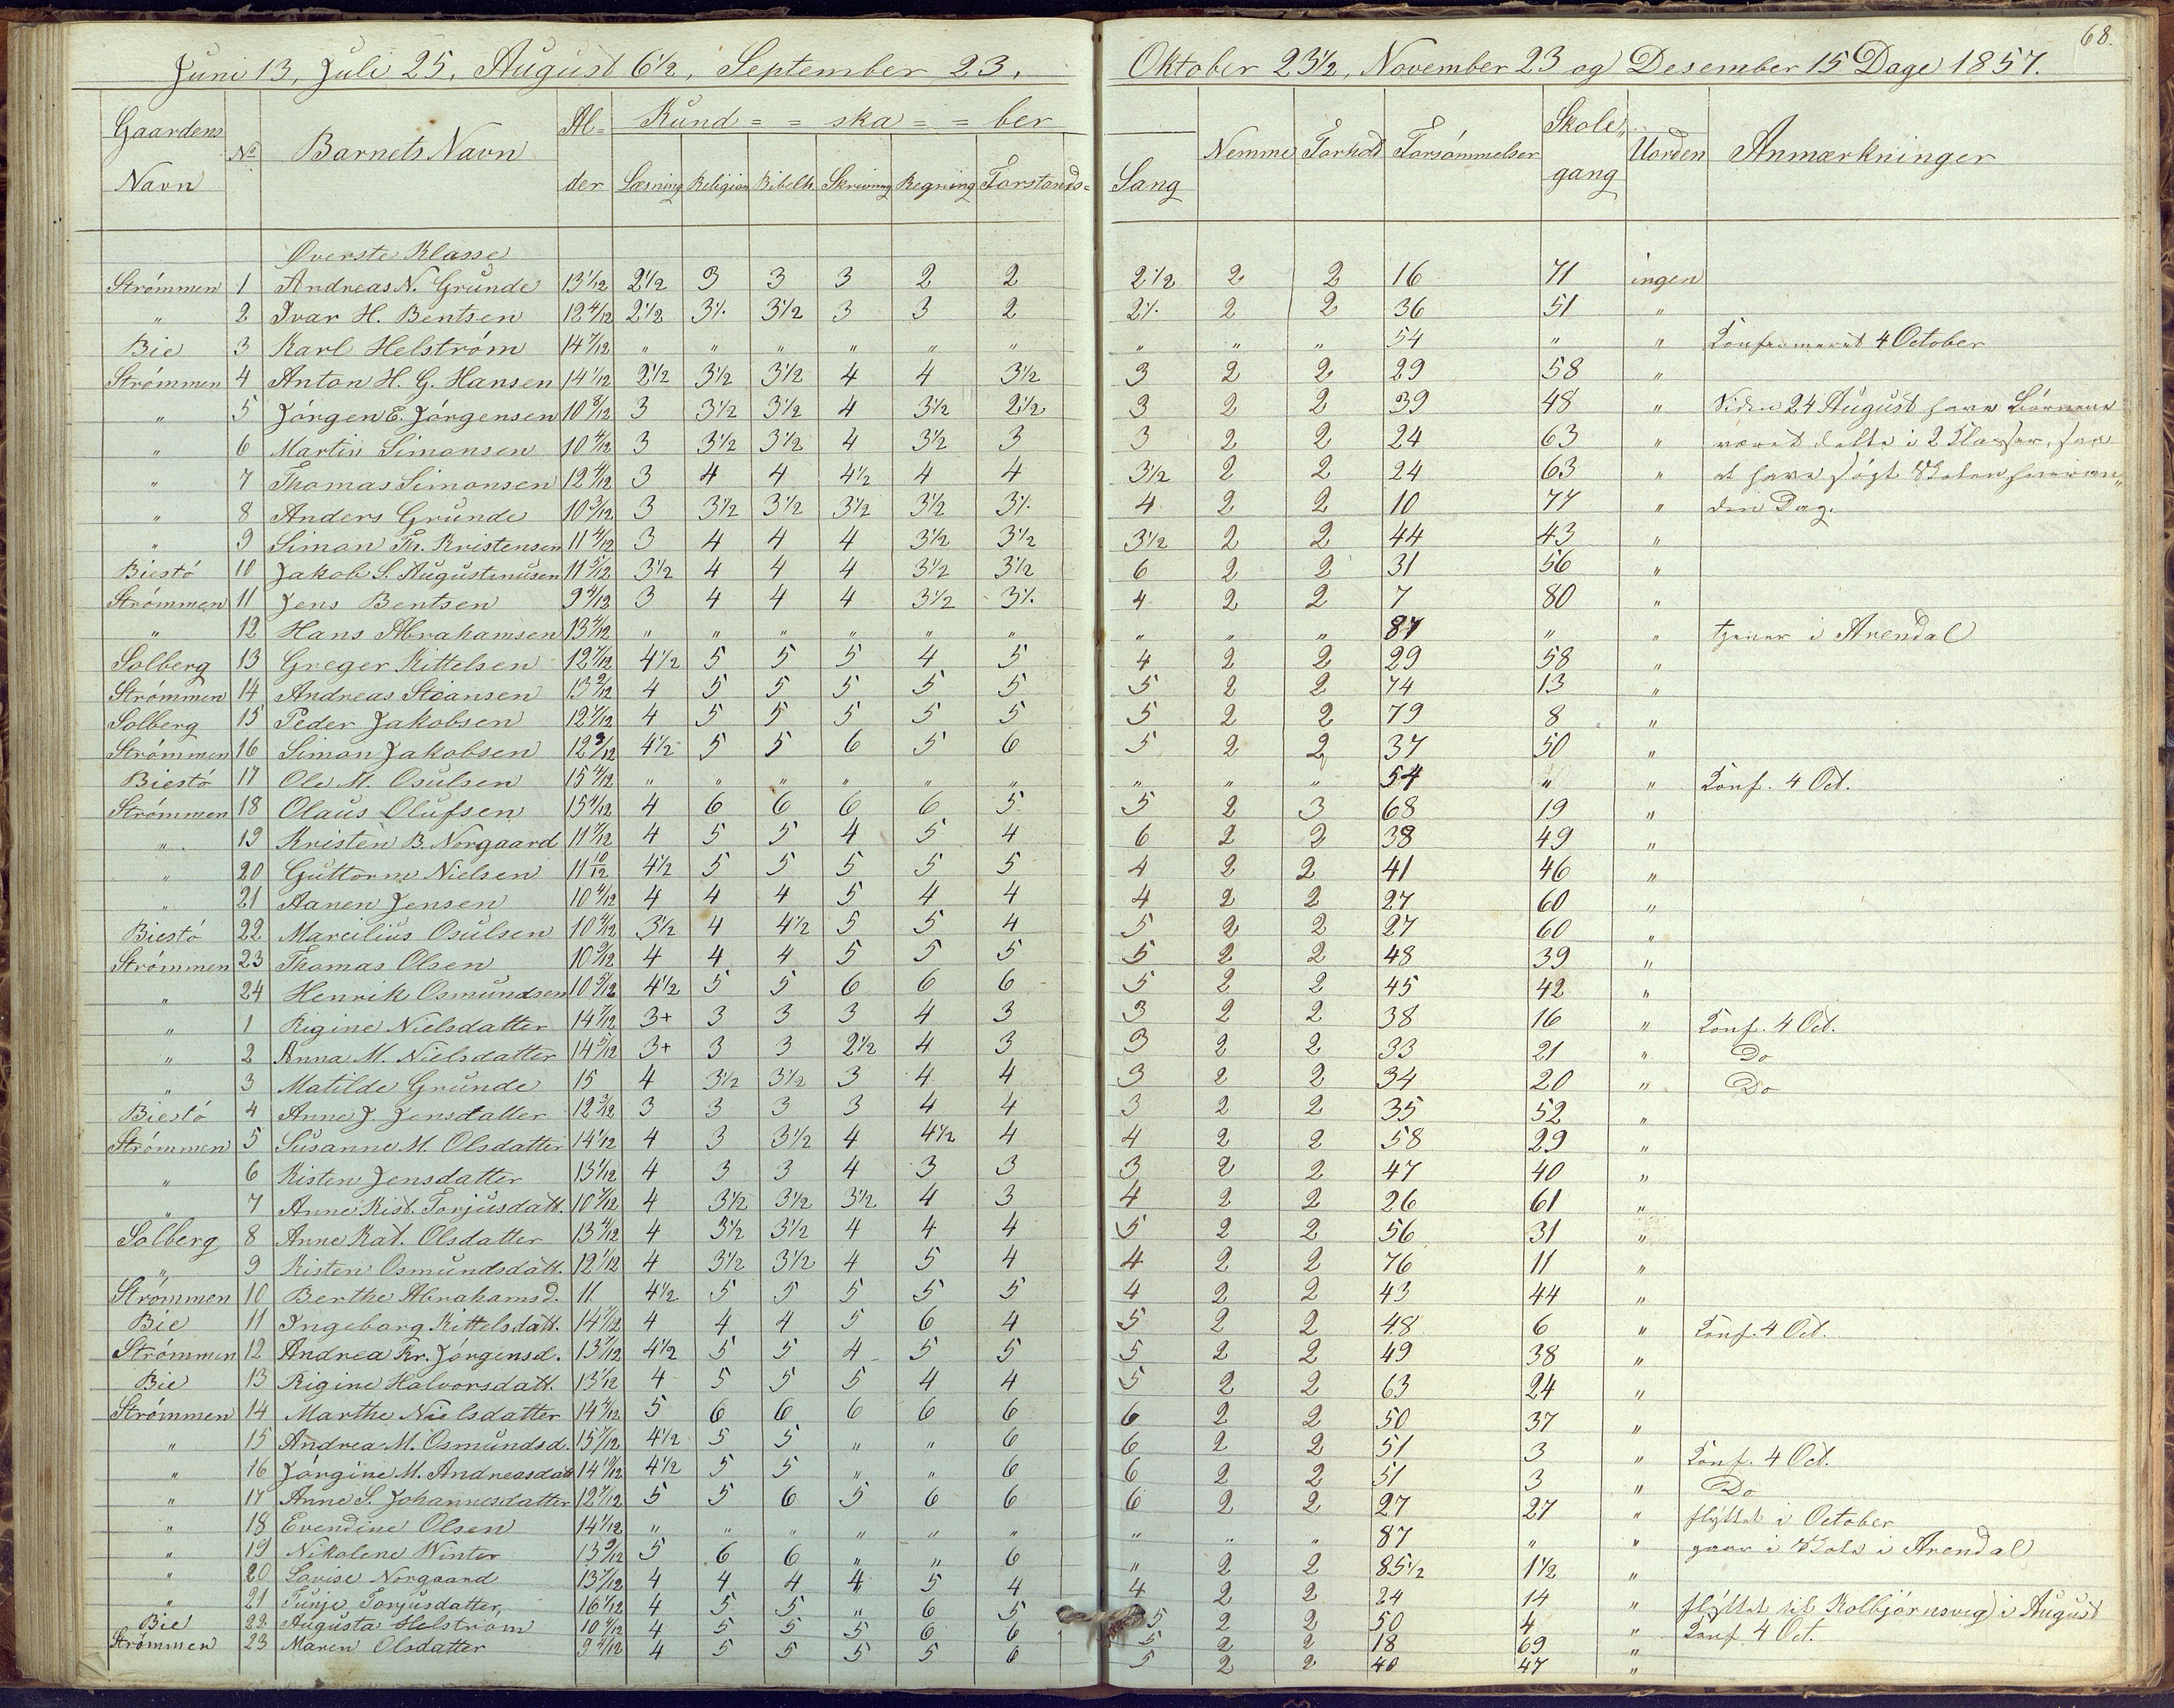 68.
Juni 13, Juli 25, August 6½, September 23, Oktober 23½, November 23 og Desember 15 Dage 1857.
Gaardens Navn No Barnets Navn Alder Kund = = ska = = ber Sang Nemme Forhold Forsømmelser Skolegang Uorden Anmærkninger
Læsning Religion Bibelh. Skrivning Regning Forstands=
Øverste Klasse
Strömmen 1 Andreas N. Grunde 13 1/12 2½ 3 3 3 2 2 2½ 2 2 16 71 ingen
" 2 Ivar H. Bentsen 12 4/12 2½ 3% 3½ 3 3 2 2% 2 2 36 51 "
Bie 3 Karl Helström 14 7/12 " " " " " " " " " 54 " " Konfirmeret 4 October
Strömmen 4 Anton H. G. Hansen 14 1/12 2½ 3½ 3½ 4 4 3½ 3 2 2 29 58 "
" 5 Jörgen E. Jörgensen 10 8/12 3 3½ 3½ 4 3½ 2½ 3 2 2 39 48 " Siden 24 August have Börnene
" 6 Martin Simonsen 10 4/12 3 3½ 3½ 4 3½ 3 3 2 2 24 63 " været delte i 2 Klasser, saa
" 7 Thomas Simonsen 12 4/12 3 4 4 4½ 4 4 3½ 2 2 24 63 " at have sögt Skolen hveran„
" 8 Anders Grunde 10 3/12 3 3½ 3½ 3½ 3½ 3% 4 2 2 10 77 " den Dag.
" 9 Simon Th. Kristensen 11 4/12 3 4 4 4 3½ 3½ 3½ 2 2 44 43 "
Biestö 10 Jakob S. Augustinusen 11 5/12 3½ 4 4 4 3½ 3½ 6 2 2 31 56 "
Strömmen 11 Jens Bentsen 9 4/12 3 4 4 4 3½ 3% 4 2 2 7 80 "
" 12 Hans Abrahamsen 13 4/12 " " " " " " " " " 87 " " tjener i Arendal
Solberg 13 Greger Kittelsen 12 7/12 4½ 5 5 5 4 5 4 2 2 29 58 "
Strömmen 14 Andreas Stiansen 13 2/12 4 5 5 5 5 5 5 2 2 74 13 "
Solberg 15 Peder Jakobsen 12 4/12 4 5 5 5 5 5 5 2 2 79 8 "
Strömmen 16 Simon Jakobsen 12 9/12 4½ 5 5 6 5 6 5 2 2 37 50 "
Biestö 17 Ole M. Osulsen 15 4/12 " " " " " " " " " 54 " " Konf. 4 Oct.
Strömmen 18 Olaus Olufsen 15 4/12 4 6 6 6 6 5 5 2 3 68 19 "
" 19 Kristen B. Norgaard 11 7/12 4 5 5 4 5 4 6 2 2 38 49 "
" 20 Guttorm Nielsen 11 10/12 4½ 5 5 5 5 5 4 2 2 41 46 "
" 21 Aanen Jensen 10 4/12 4 4 4 5 4 4 4 2 2 27 60 "
Biestö 22 Marcilius Osulsen 10 4/12 3½ 4 4½ 5 5 4 5 2 2 27 60 "
Strömmen 23 Thomas Olsen 10 5/12 4 4 4 5 5 5 5 2 2 48 39 "
" 24 Henrik Osmundsen 10 5/12 4½ 5 5 6 6 6 5 2 2 45 42 "
" 1 Rigine Nielsdatter 14 7/12 3+ 3 3 3 4 3 3 2 2 38 16 " Konf. 4 Oct.
" 2 Anna M. Nielsdatter 14 5/12 3+ 3 3 2½ 4 3 3 2 2 33 21 " Do
" 3 Matilde Grunde 15 4 3½ 3½ 3 4 4 3 2 2 34 20 " Do
Biestö 4 Anne J. Jensdatter 12 3/12 3 3 3 3 4 4 3 2 2 35 52 "
Strömmen 5 Susanne M. Olsdatter 14 1/12 4 3 3½ 4 4½ 4 4 2 2 58 29 "
" 6 Kisten Jensdatter 13 1/12 4 3 3 4 3 3 3 2 2 47 40 "
" 7 Anne Kist. Torjusdatt. 10 7/12 4 3½ 3½ 3½ 4 3 4 2 2 26 61 "
Solberg 8 Anne Kat. Olsdatter 13 4/12 4 3½ 3½ 4 4 4 5 2 2 56 31 "
" 9 Kisten Osmundsdatt. 12 1/12 4 3½ 3½ 4 5 4 4 2 2 76 11 "
Strömmen 10 Berthe Abrahamsd. 11 4½ 5 5 5 5 5 4 2 2 43 44 "
Bie 11 Ingeborg Kittelsdatt. 14 7/12 4 4 4 5 6 4 5 2 2 48 6 " Konf. 4 Oct.
Strömmen 12 Andrea Kr. Jörgensd. 13 7/12 4½ 5 5 4 5 5 5 2 2 49 38 "
Bie 13 Rigine Halvorsdatt. 13 1/12 4 5 5 5 4 4 5 2 2 63 24 "
Strömmen 14 Marthe Nielsdatter 14 4/12 5 6 6 6 6 6 6 2 2 50 37 "
" 15 Andrea M. Osmundsd. 15 7/12 4½ 5 5 " " 6 6 2 2 51 3 " Konf. 4 Oct.
" 16 Jörgine M. Andreasdatt 14 10/12 4½ 5 5 " " 6 6 2 2 51 3 " Do
" 17 Anne S. Johannesdatter 12 7/12 5 5 6 5 6 6 6 2 2 27 27 " flyttet i October
" 18 Evendine Olsen 14 1/12 " " " " " " " " " 87 " " gaar i Skole i Arendal
" 19 Nikolene Winter 13 9/12 5 6 6 " " 6 " 2 2 85½ 1½ "
" 20 Lovise Norgaard 13 7/12 4 4 4 4 5 4 4 2 2 24 14 " flyttet til Kolbjörnsvig i August
" 21 Tunje Torjusdatter, 16 1/12 4 5 5 " 6 5 5 2 2 50 4 " Konf. 4 Oct.
Bie 22 Augusta Helström 10 4/12 4 5 5 5 6 6 5 2 2 18 69 "
Strömmen 23 Maren Olsdatter 9 5/12 4 5 5 5 5 6 5 2 2 40 47 "